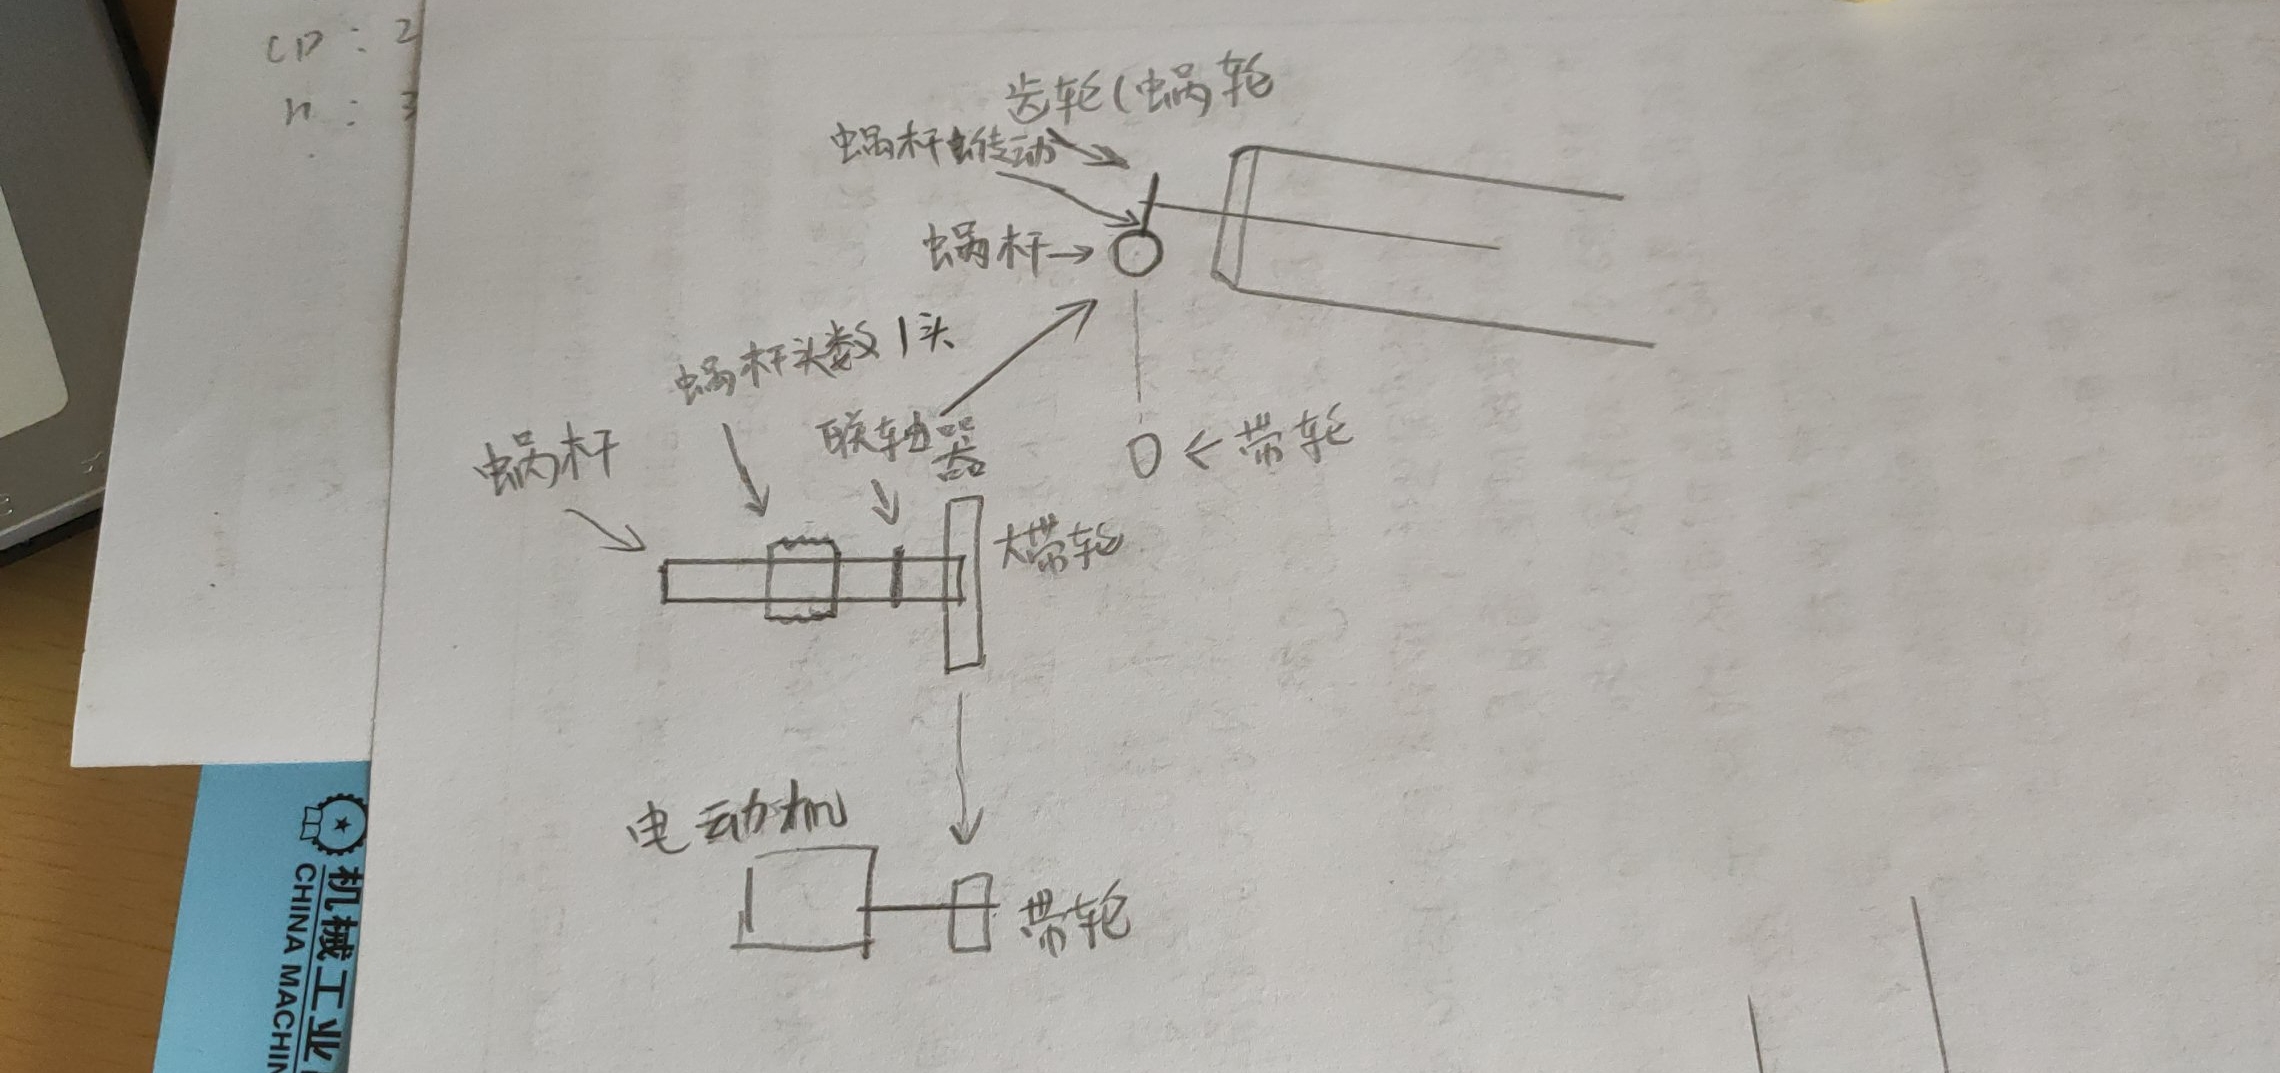 CD : 2
n : 3
齿轮(蜗轮
蜗杆传动
蜗杆
蜗杆头数 1头
联轴器
带轮
蜗杆
大带轮
电动机
带轮
机械工业
CHINA MACHIN